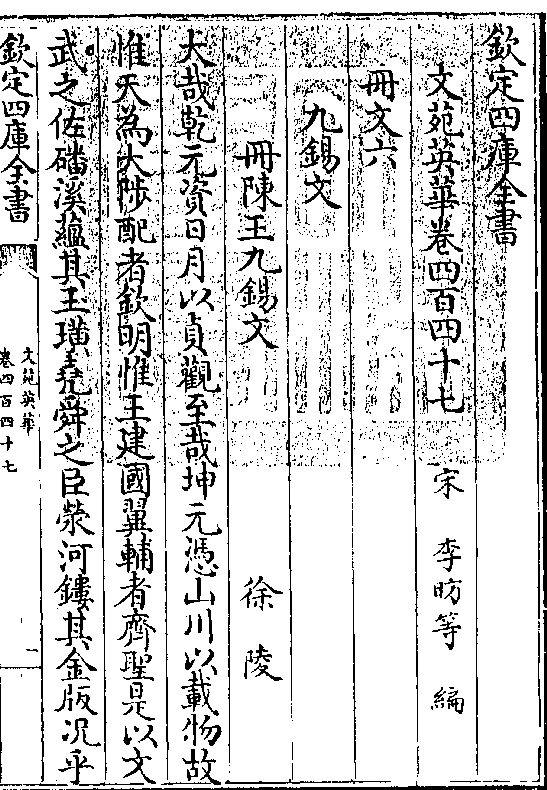 欽定四庫全書
文苑英華卷四百四十七
宋 李昉等 編
冊文六
九錫文
冊陳王九錫文
徐陵
大哉乾元資日月以貞觀至哉坤元憑山川以載物故
惟天為大陟配者欽明惟王建國翼輔者齊聖是以文
武之佐磻溪蘊其玉璜堯舜之臣滎河鏤其金版况乎
欽定四庫全書
文苑英華
卷四百四十七
一